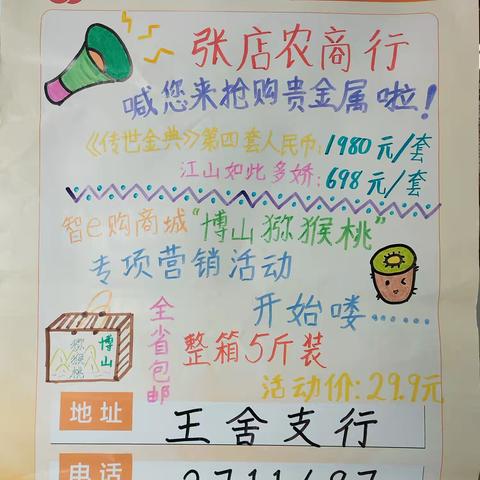 张店农商行
喊您来抢购贵金属啦！
《传世金典》第四套人民币：1980元/套
江山如此多娇：698元/套
智e购商城“博山猕猴桃”
专项营销活动
开始喽……
全省包邮
博山
猕猴桃
整箱5斤装
活动价：29.9元
地址
王舍支行
电话